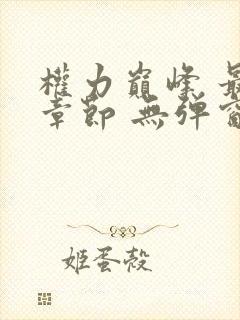 權力巔峰 最
章節 無彈窗
姬蛋殼